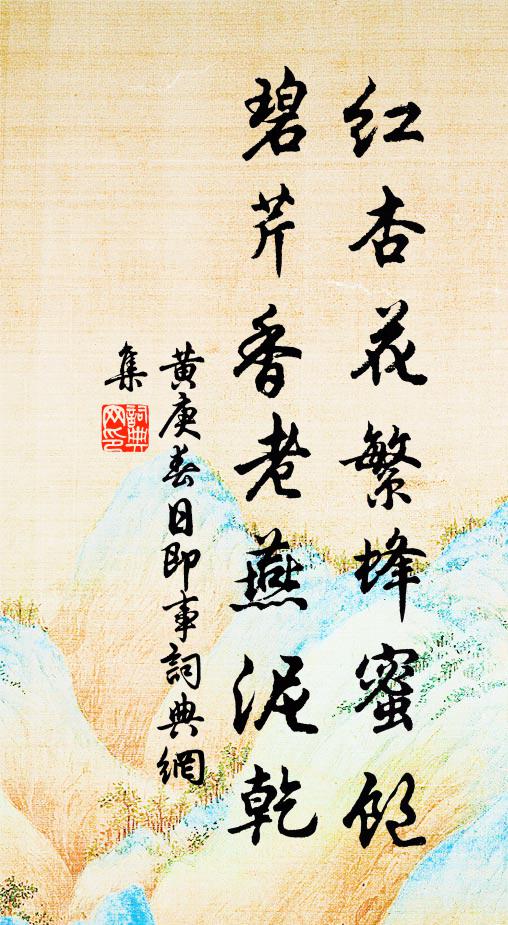 紅杏花繁蜂蜜飽
碧芹香老燕泥乾
黃庚春日即事詞典網
集
詞典
网印